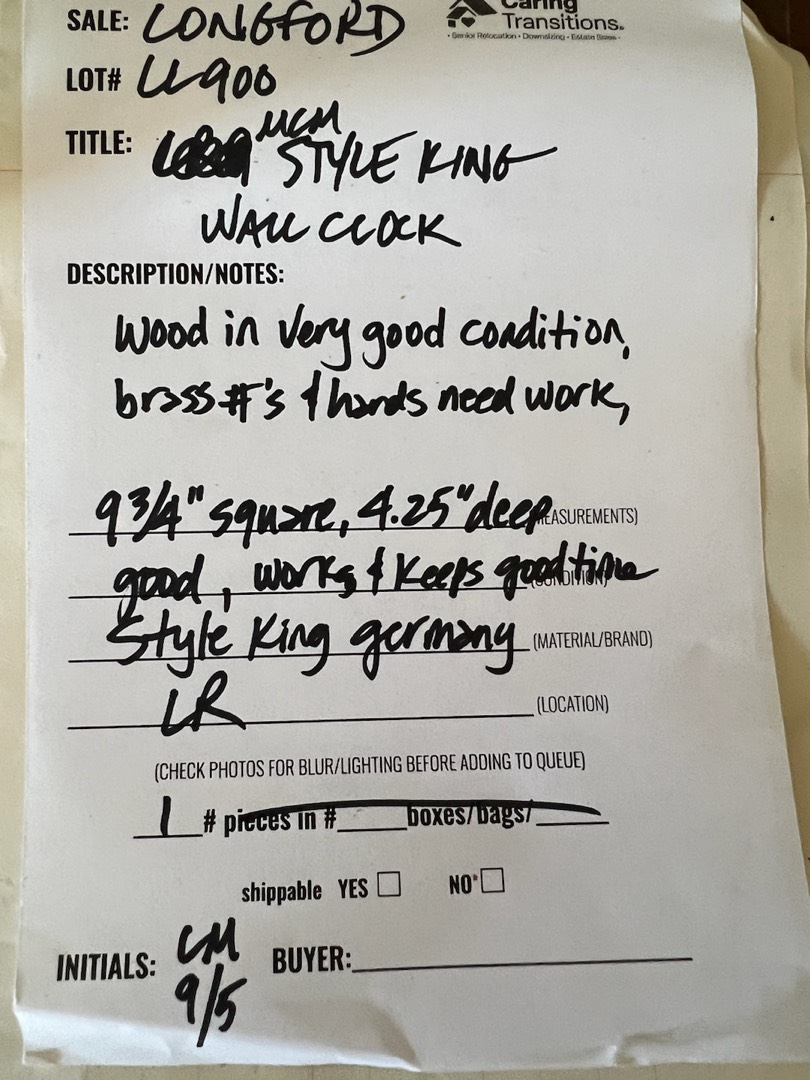 Caring
SALE: LONGFORD
Transitions.
• Senior Relocation • Downsizing • Estate Sales •
LOT# LL900
TITLE: MCM STYLE KING
WALL CLOCK
DESCRIPTION/NOTES:
Wood in very good condition,
brass #'s & hands need work,
9 3/4" square, 4.25" deep (MEASUREMENTS)
good, works & keeps good time (CONDITION)
Style King germany (MATERIAL/BRAND)
LR (LOCATION)
(CHECK PHOTOS FOR BLUR/LIGHTING BEFORE ADDING TO QUEUE)
1 # pieces in #_____boxes/bags/_____
shippable YES ☐ NO* ☐
INITIALS: CM BUYER:
9/5